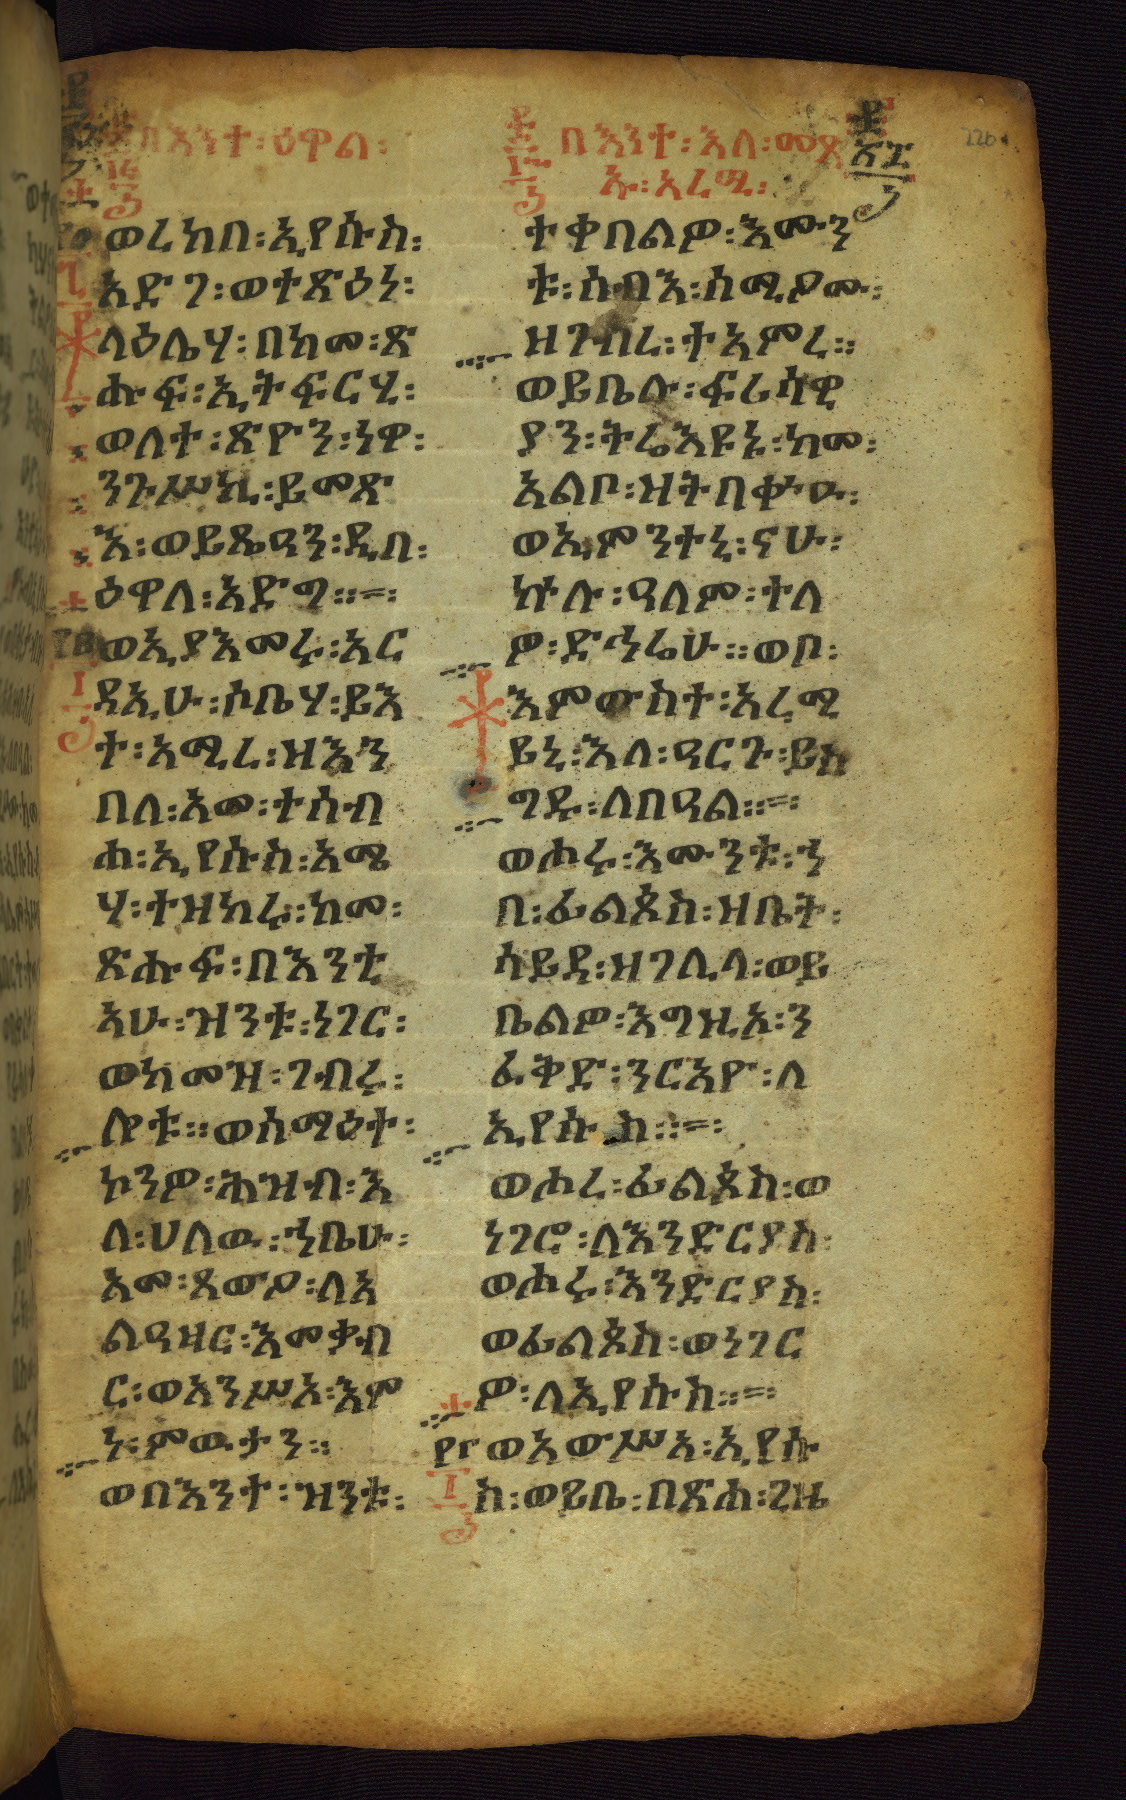 በእንተ፡ዕዋል፡
ወረከበ፡ኢየሱስ፡
አድገ፡ወተጽዕነ፡
ላዕሌሃ፡በከመ፡ጽ
ሑፍ፡ኢትፍርሂ፡
ወለተ፡ጽዮን፡ነዋ፡
ንጉሥኪ፡ይመጽ
እ፡ወይጼዓን፡ዲበ፡
ዕዋለ፡አድግ።
፲፪ ወኢያእመሩ፡አር
ዳኢሁ፡ሶቤሃ፡ይእ
ተ፡አሚረ፡ዝእን
በለ፡አመ፡ተሰብ
ሐ፡ኢየሱስ፡አሜ
ሃ፡ተዝከሩ፡ከመ፡
ጽሑፍ፡በእንቲ
ኣሁ፡ዝንቱ፡ነገር፡
ወከመዝ፡ገብሩ፡
ሎቱ። ወሰማዕተ፡
ኮንዎ፡ሕዝብ፡እ
ለ፡ሀለዉ፡ኀቤሁ፡
አመ፡ጸውዖ፡ለአ
ልዓዛር፡እመቃብ
ር፡ወአንሥአ፡እም
ነ፡ምዉታን።
ወበእንተ፡ዝንቱ፡
በእንተ፡እለ፡መጽ
ኡ፡አረሚ፡
ተቀበልዎ፡እሙን
ቱ፡ሰብእ፡ሰሚዖሙ፡
ዘገብረ፡ተአምረ።
ወይቤሉ፡ፍሪሳዊ
ያን፡ትሬእዩኑ፡ከመ፡
አልቦ፡ዝትበቍዑ፡
ወኢምንተኒ፡ናሁ፡
ኵሉ፡ዓለም፡ተለ
ዎ፡ድኅሬሁ። ወቦ፡
እምውስተ፡አረሚ
ይኒ፡እለ፡ዓርጉ፡ይስ
ግዱ፡ለበዓል።
ወሖሩ፡እሙንቱ፡ኀ
በ፡ፊልጶስ፡ዘቤተ፡
ሳይዳ፡ዘገሊላ፡ወይ
ቤልዎ፡እግዚኦ፡ን
ፈቅድ፡ንርአዮ፡ለ
ኢየሱስ።
ወሖረ፡ፊልጶስ፡ወ
ነገሮ፡ለእንድርያስ፡
ወሖሩ፡እንድርያስ፡
ወፊልጶስ፡ወነገር
ዎ፡ለኢየሱስ።
፲፫ ወአውሥአ፡ኢየሱ
ስ፡ወይቤ፡በጽሐ፡ጊዜ